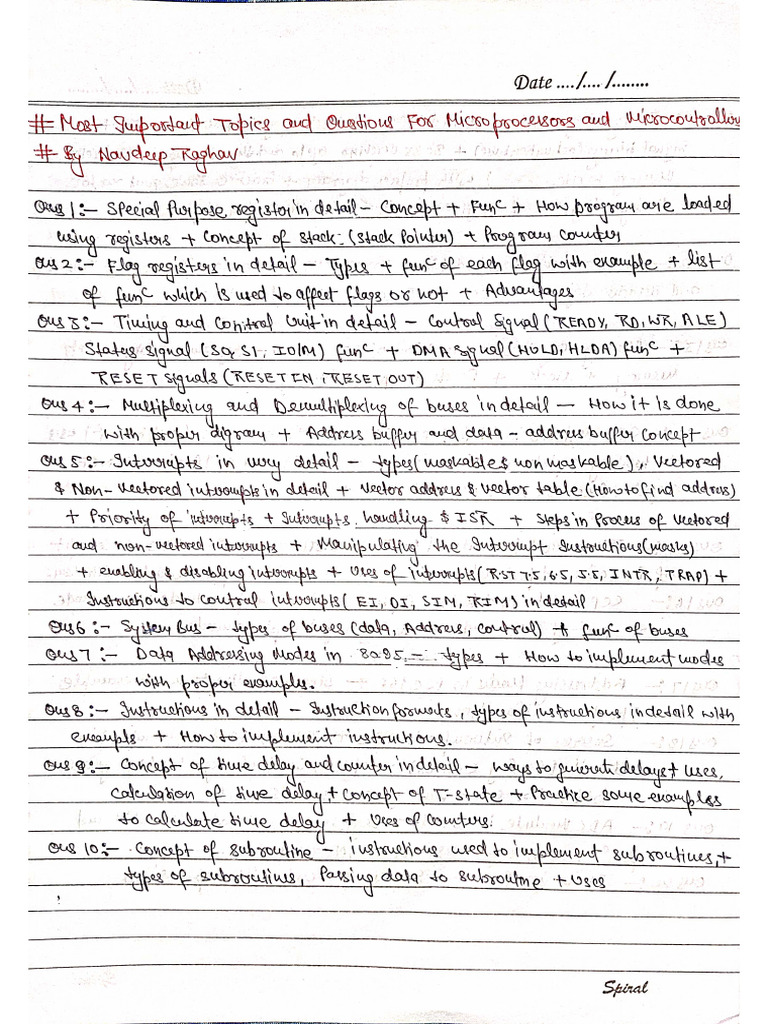 Date ..../..../........
# Most Important Topics and Questions For Microprocessors and Microcontrollers
# By Navdeep Raghav
Ques 1:- Special Purpose registor in detail - Concept + Func + How program are loaded
using registers + Concept of stack - (Stack Pointer) + Program Counter
Ques 2:- Flag registers in detail - Types + func of each flag with example + list
of func which is used to affect flags or not + Advantages
Ques 3:- Timing and Control Unit in detail - Control Signal (READY, RD, WR, ALE)
Status signal (S0, S1, IO/M) func + DMA signal (HOLD, HLDA) func +
RESET signals (RESET IN, RESET OUT)
Ques 4:- Multiplexing and Demultiplexing of buses in detail - How it is done
with proper digram + Address buffer and data - address buffer concept
Ques 5:- Interrupts in very detail - types (maskable & non maskable), Vectored
& Non-Vectored interrupts in detail + vector address & vector table (How to find address)
+ Priority of interrupts + Interrupts handling & ISR + Steps in Process of vectored
and non-vectored interrupts + Manipulating the Interrupt Instructions (masks)
+ enabling & disabling interrupts + Uses of interrupts (RST 7.5, 6.5, 5.5, INTR, TRAP) +
Instructions to control interrupts (EI, DI, SIM, RIM) in detail
Ques 6:- System Bus - types of buses (data, Address, control) + func of buses
Ques 7:- Data Addressing Modes in 8085 - types + How to implement modes
with proper examples.
Ques 8:- Instructions in detail - Instruction formats, types of instructions in detail with
examples + How to implement instructions.
Ques 9:- Concept of time delay and counter in detail - ways to generate delays + uses,
calculation of time delay, + Concept of T-state + Practice some examples
to calculate time delay + Uses of counters.
Ques 10:- Concept of subroutine - instructions used to implement subroutines, +
types of subroutines, Passing data to subroutne + uses
Spiral